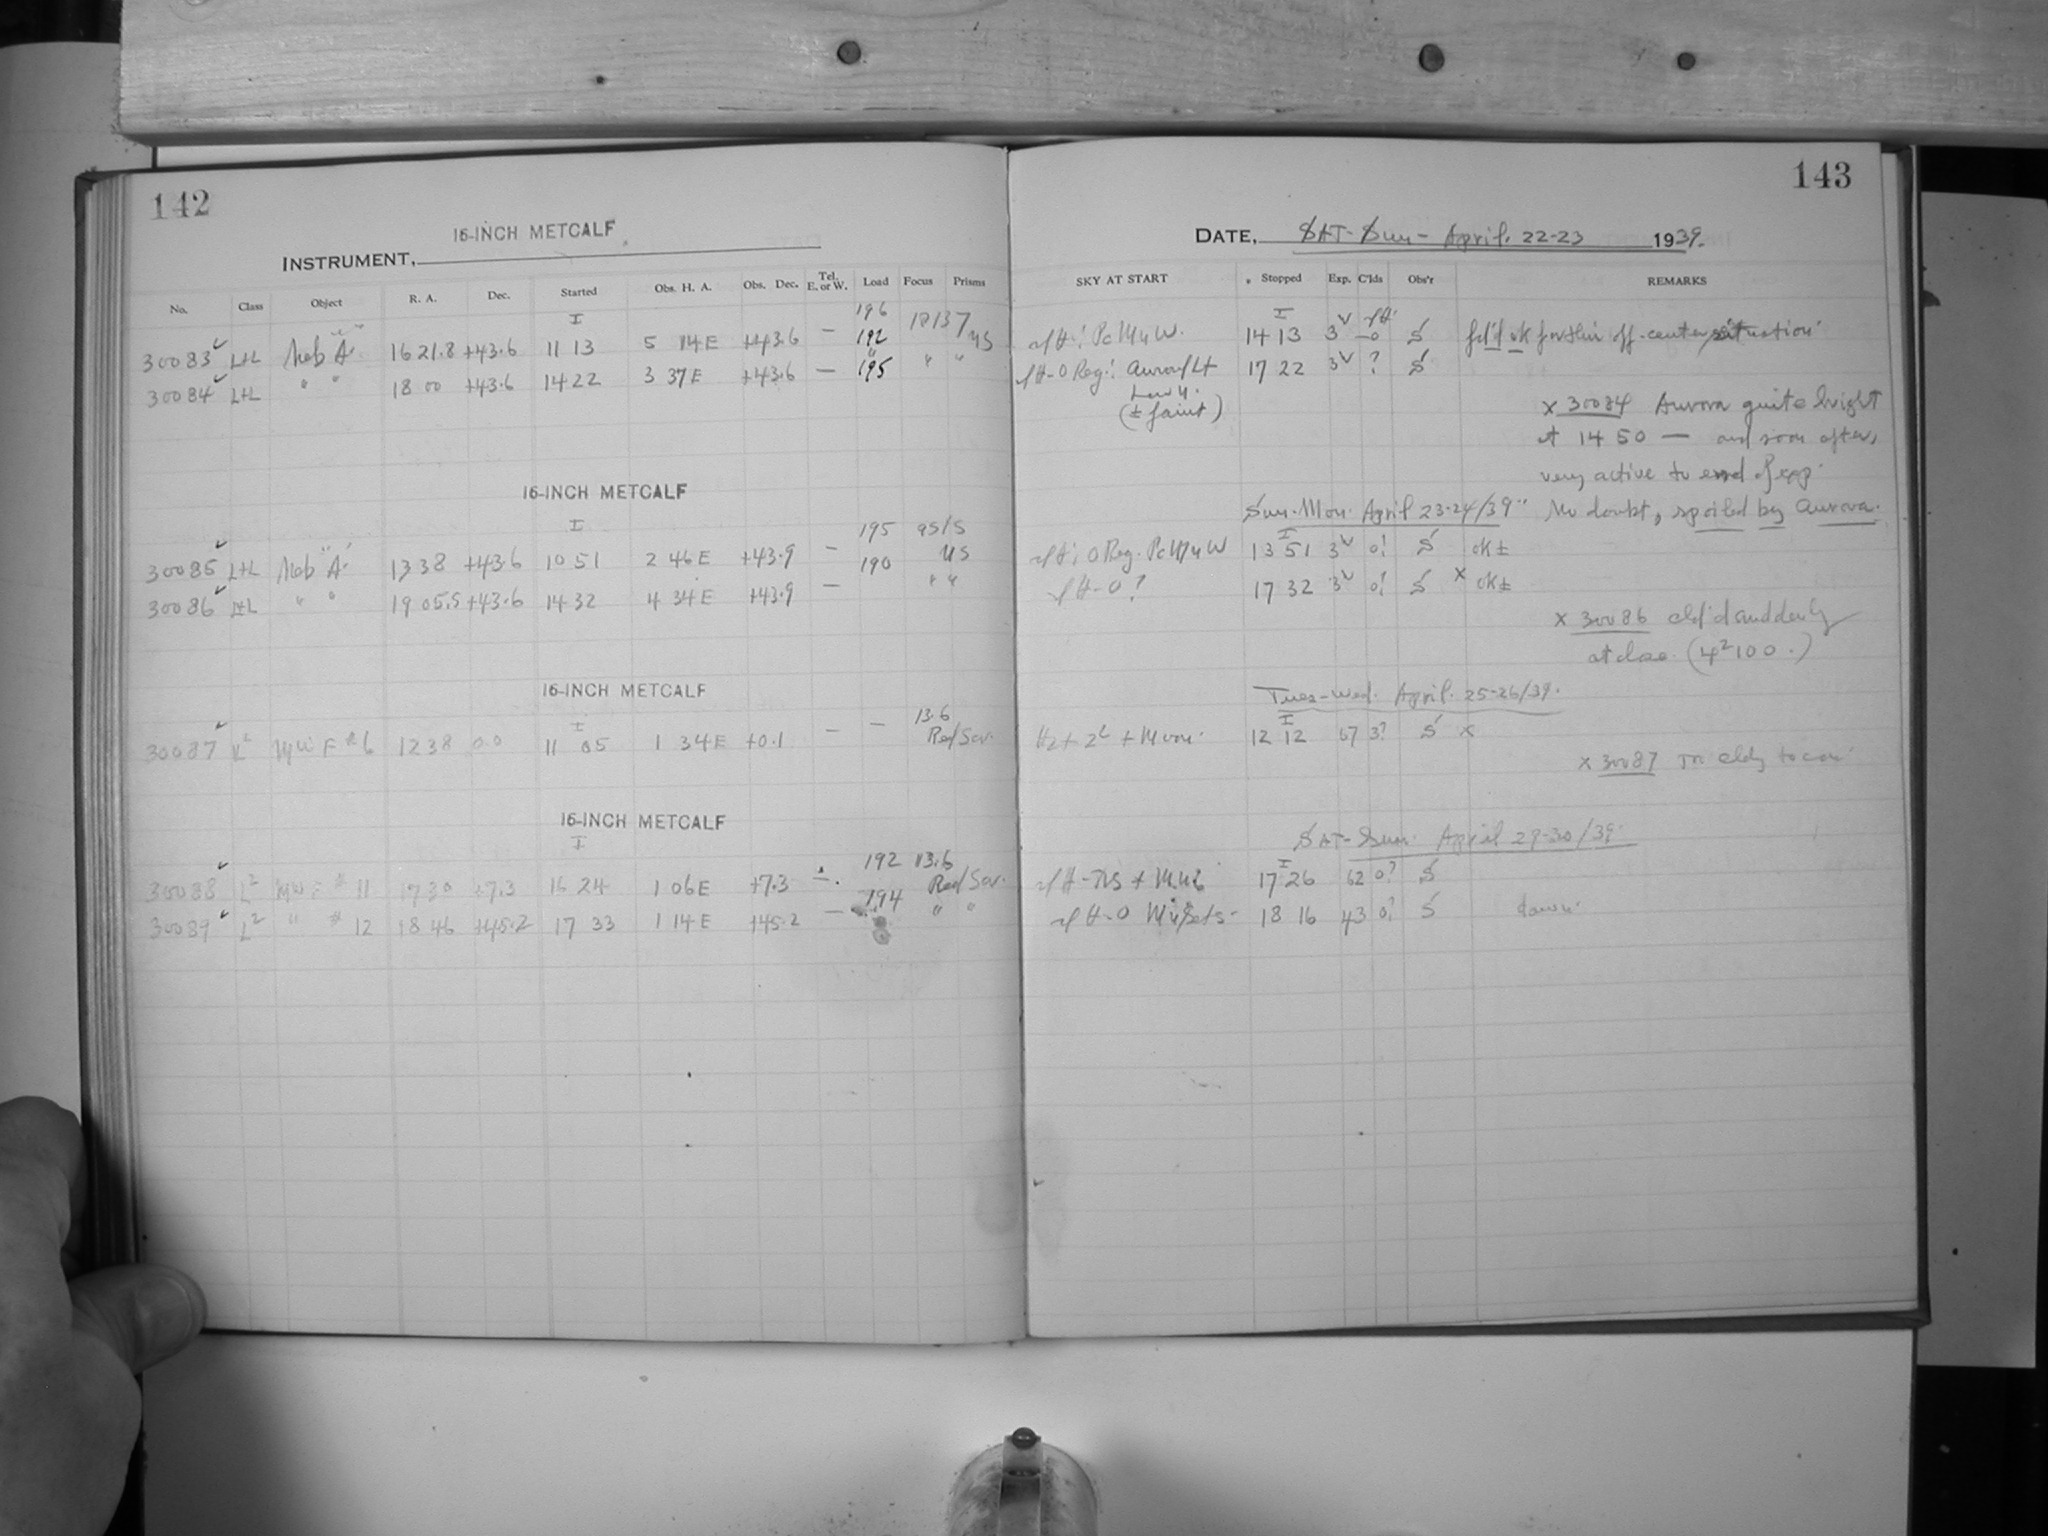 142
INSTRUMENT, 16-INCH METCALF
No. Class Object R. A. Dec. Started Obs. H. A. Obs. Dec. Tel. E. or W. Load Focus Prisms
I 196
30083 ✓ L+L Neb "A" 16 21.8 +43.6 11 13 5 14 E +43.6 — 192
30084 ✓ L+L " " 18 00 +43.6 14 22 3 37 E +43.6 — 195 " "
16-INCH METCALF
I 195
30085 ✓ L+L Neb "A" 13 38 +43.6 10 51 2 46 E +43.9 — 190
30086 ✓ L+L " " 19 05.5 +43.6 14 32 4 34 E +43.9 — " "
16-INCH METCALF
I 13.6
30087 ✓ L² MWF #6 12 38 0.0 11 05 1 34 E +0.1 — — Red Scr.
16-INCH METCALF
I 192 13.6
30088 ✓ L² MWF # 11 17 30 +7.3 16 24 1 06 E +7.3 — Red Scr.
194
30089 ✓ L² " # 12 18 46 +45.2 17 33 1 14 E +45.2 — " "
143
DATE, SAT-Sun- April. 22-23 1939.
SKY AT START Stopped Exp. C'lds Obs'r REMARKS
I
14 13 S off-center
Auroral Lt 17 22 ? S
Low N.
(± faint)
x 30084 Aurora quite bright
at 14 50 — and soon after,
very active to end of exp.
Sun-Mon. April 23-24/39 No doubt, spoiled by Aurora.
I
13 51 0? S ok±
17 32 0? S x ok±
x 30086 cld'd suddenly
at close. (4² 100.)
Tues-Wed. April. 25-26/39.
I
+ Moon 12 12 67 3? S x
x 30087 cldy to con
SAT-Sun. April 29-30/39.
I
17 26 62 0? S
18 16 43 0? S dawn.